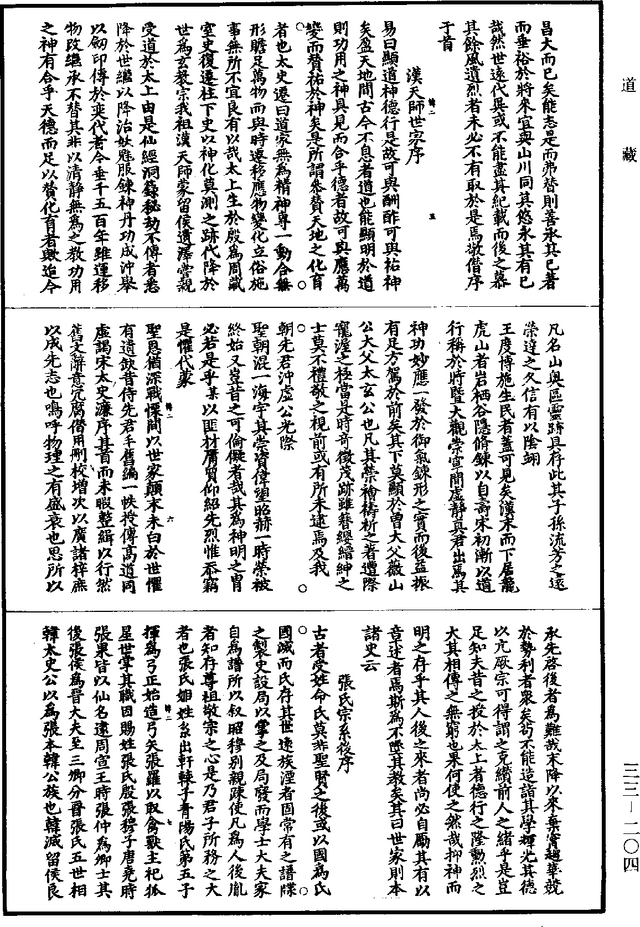 道藏
昌大而已矣能志是而弗替則善承其已著
而垂裕於將來宜與山川同其悠永其有已
哉然世遠代異或不能盡其紀載而後之慕
其餘風遺烈者未必不有取於是焉敬僭序
于首
漢天師世家序
易曰顯道神德行是故可與酬酢可與祐神
矣盈天地間古今不息者道也能顯明於道
則功用之神具見而合乎德者故可與應萬
變而贊祐於神矣是所謂參贊天地之化育
者也太史遷曰道家無為精神專一動合無
形贍足萬物而與時遷移應物變化立俗施
事無所不宜良有以哉太上生於殷為周藏
室史復遷柱下史以神化莫測之跡代降於
世為玄教宗我祖漢天師蒙留侯遺澤嘗親
受道於太上由是仙經洞籙秘劫不傳者悉
降於世繼以降治妖魅服鍊神丹功成沖舉
以劒印傳於奕代者今垂千五百年雖運移
物改繼承不替其非以清靜無為之教功用
之神有合乎天德而足以贊化育者歟迨今
凡名山奧區靈跡具存此其子孫流芳之遠
榮達之久信有以陰翊
王度博施生民者蓋可見矣漢末而下居龍
虎山者岩栖谷隱脩鍊以自壽宋初漸以道
行稱於時暨大觀崇宣間虛靜真君出焉其
神功妙應一發於御氣鍊形之實而後益振
有足方駕於前矣其下莫顯於曾大父薇山
公大父太玄公也凡其禁禬禱祈之著遭際
寵渥之極當是時奇徵茂跡雖簪纓縉紳之
士莫不禮敬之視前或有所未逮焉及我
朝先君沖虛公光際
聖朝混一海宇其崇資偉望昭赫一時榮被
終始又豈昔之可倫儗者哉其為神明之胄
必若是乎某以匪材膺質仰紹先烈惟忝竊
是懼代蒙
聖恩猶深戰慄間以世家顛末未白於世懼
有遺缺昔侍先君手舊編一帙授傅高道同
虛謁宋太史濂序其首而未暇整緝以行然
舊文辭意冗腐借用刪校增次以廣諸梓庶
以成先志也嗚呼物理之有盛衰也思所以
承先啓後者為難哉末降以來棄實趨華競
於勢利者衆矣苟不能造詣其學輝光其德
以亢厥宗可得謂之克纘前人之緒乎是豈
足知夫昔之授於太上者德行之隆勳烈之
大其相傳之無窮也果何使之然哉抑神而
明之存乎其人後之來者尚必自勵其有以
章述者焉斯為不墜其教矣其曰世家則本
諸史云
張氏宗系後序
古者受姓命氏莫非聖賢之後或以國為氏
國滅而氏存其世遠族湮者固常有之譜牒
之製史設局以掌之及局發而學士大夫家
自為譜所以叙昭穆別親疎使凡為人後胤
者知存尊祖敬宗之心是乃君子所務之大
者也張氏姬姓系出軒轅子青陽氏第五子
揮為弓正始造弓矢張羅以取禽獸主祀弧
星世掌其職因賜姓張氏殷張穆子唐堯時
張果皆以仙名遠周宣王時張仲為卿士其
後張侯為晉大夫至三卿分晉張氏五世相
韓太史公以為張本韓公族也韓滅留侯良
三三—二〇四